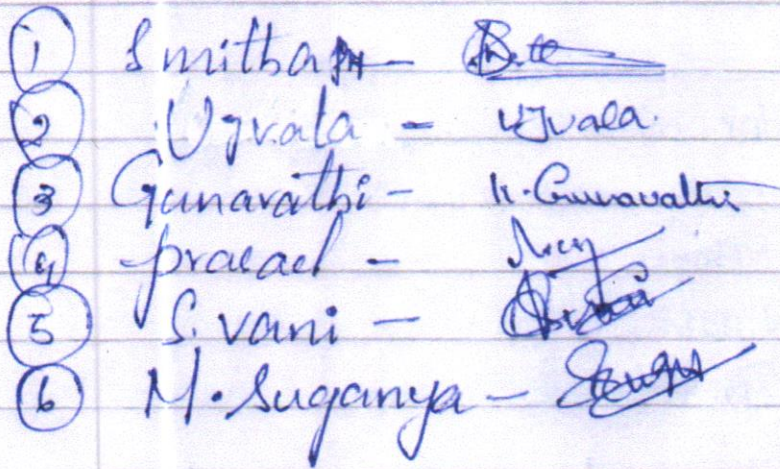 1 Smitha PH -
2 Ujvala - Ujvala.
3 Gunavathi - K. Gunavathi
4 prasad -
5 S. vani -
6 M. Suganya -